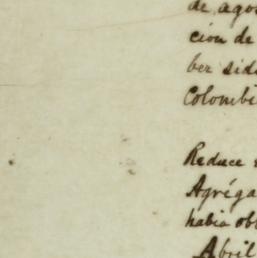 de agos
cion de
ber sid
Colombi
Reduce
Agréga
habia ob
Abril